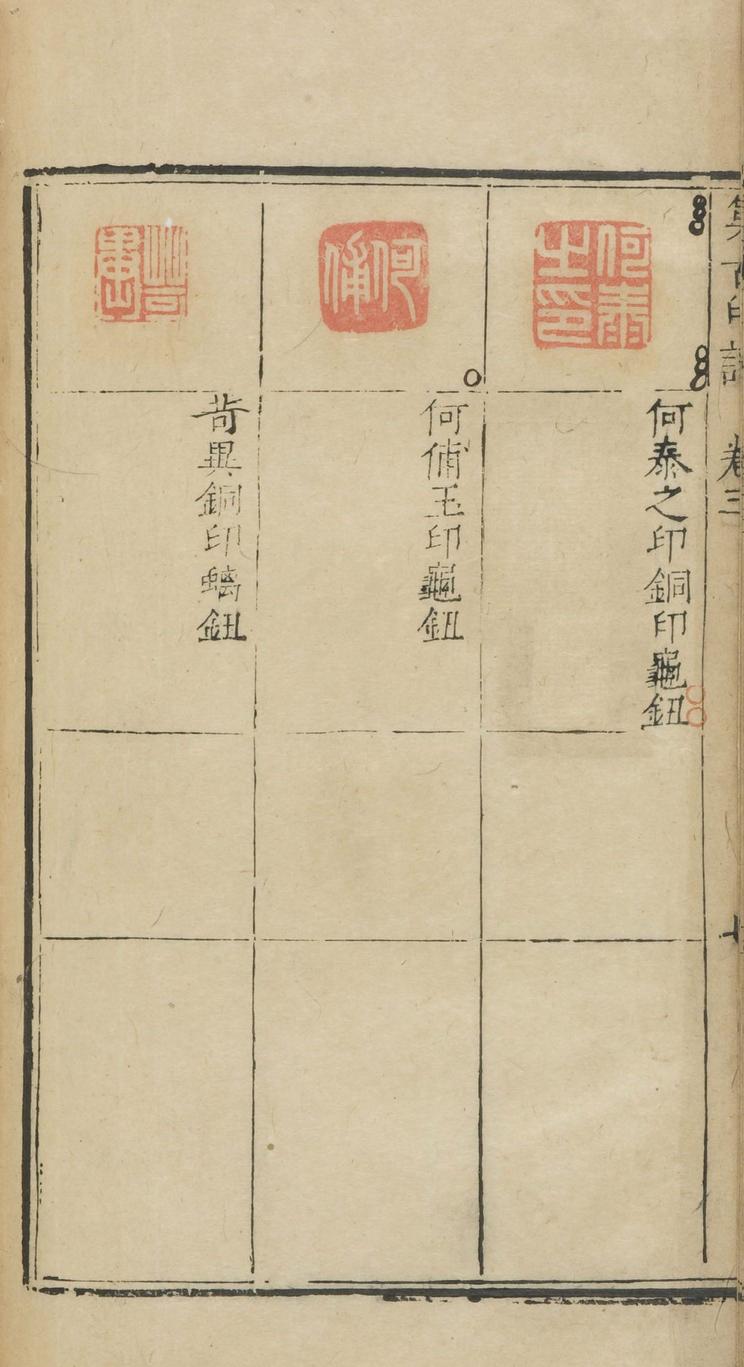 集古印譜 卷三
何泰之印
何泰之印銅印龜鈕
何脩
何脩玉印龜鈕
苛異銅印螭鈕